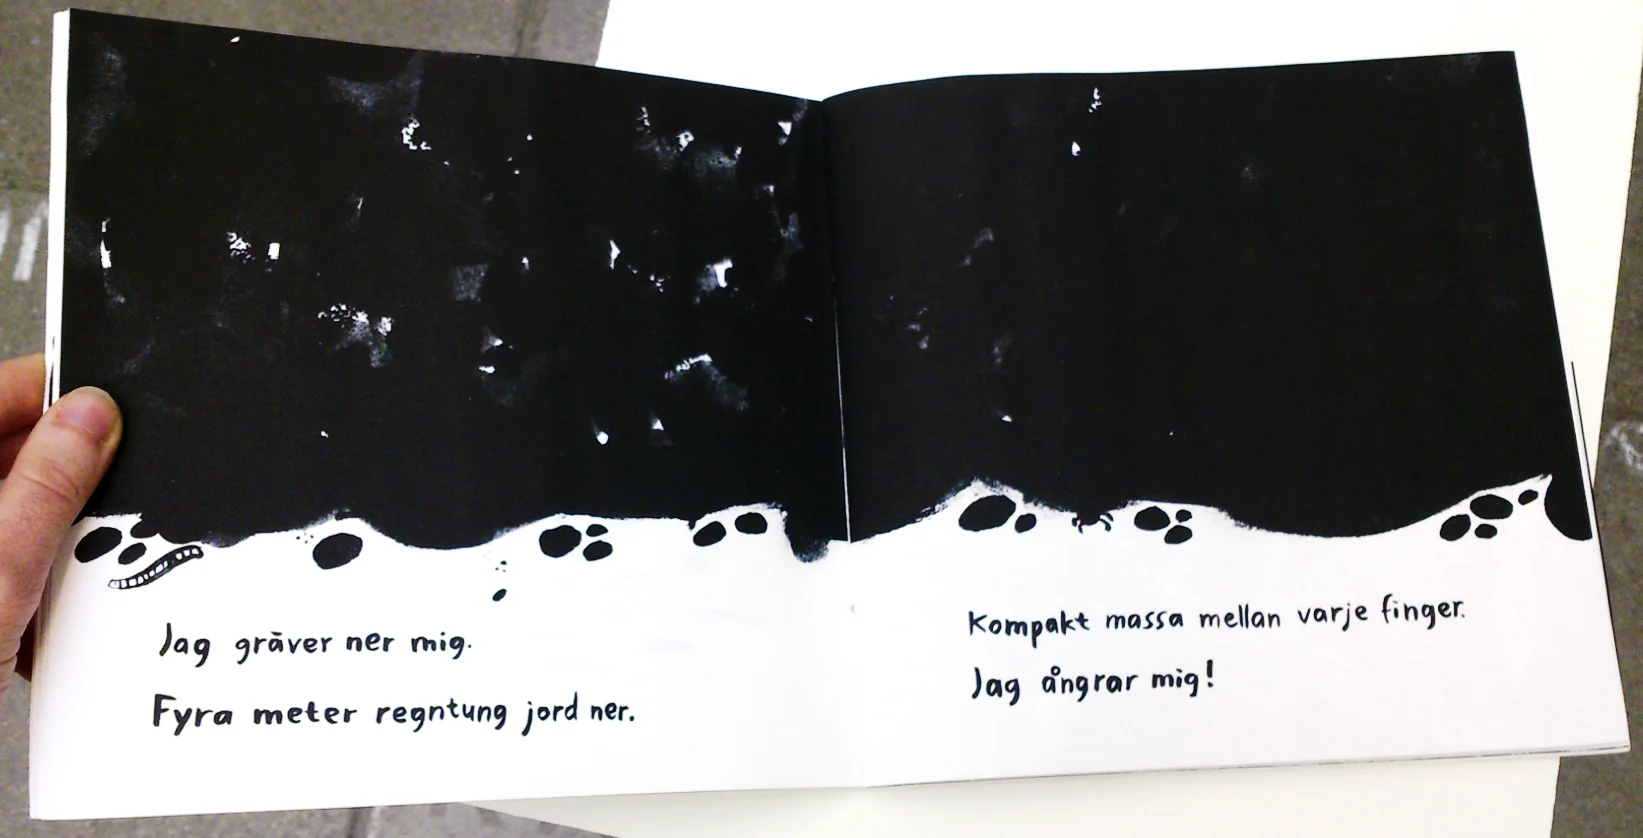 Jag gräver ner mig.
Fyra meter regntung jord ner.
Kompakt massa mellan varje finger.
Jag ångrar mig!